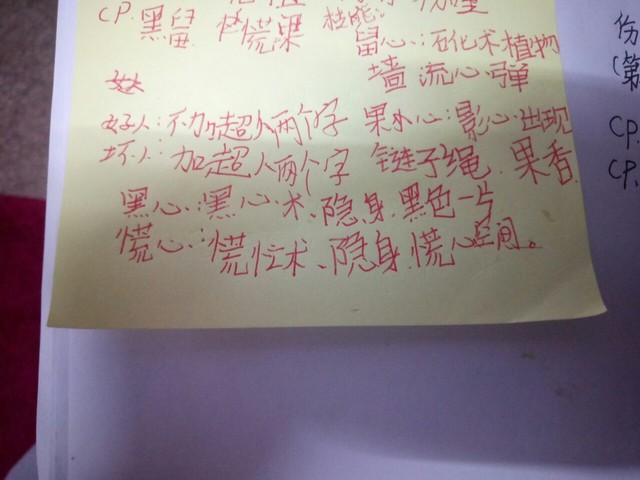 CP. 黑鼠 慌果 技能:
鼠心:石化术植物
墙 流心·弹
好人:不加超人两个字 果水心:影心·出现
坏人:加超人两个字 链子绳 果香
黑心:黑心·术、隐身、黑色一片
慌心:慌忙术、隐身、慌心空间。
伤
(第
CP.
CP.